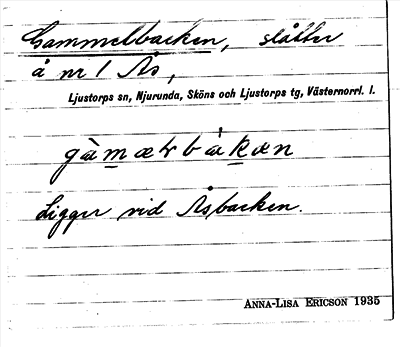 Gammelbacken, slåtter
å nr 1 Ås,
Ljustorps sn, Njurunda, Sköns och Ljustorps tg, Västernorrl. l.
gàmæłbàkæn
Ligger vid Åsbacken.
ANNA-LISA ERICSON 1935